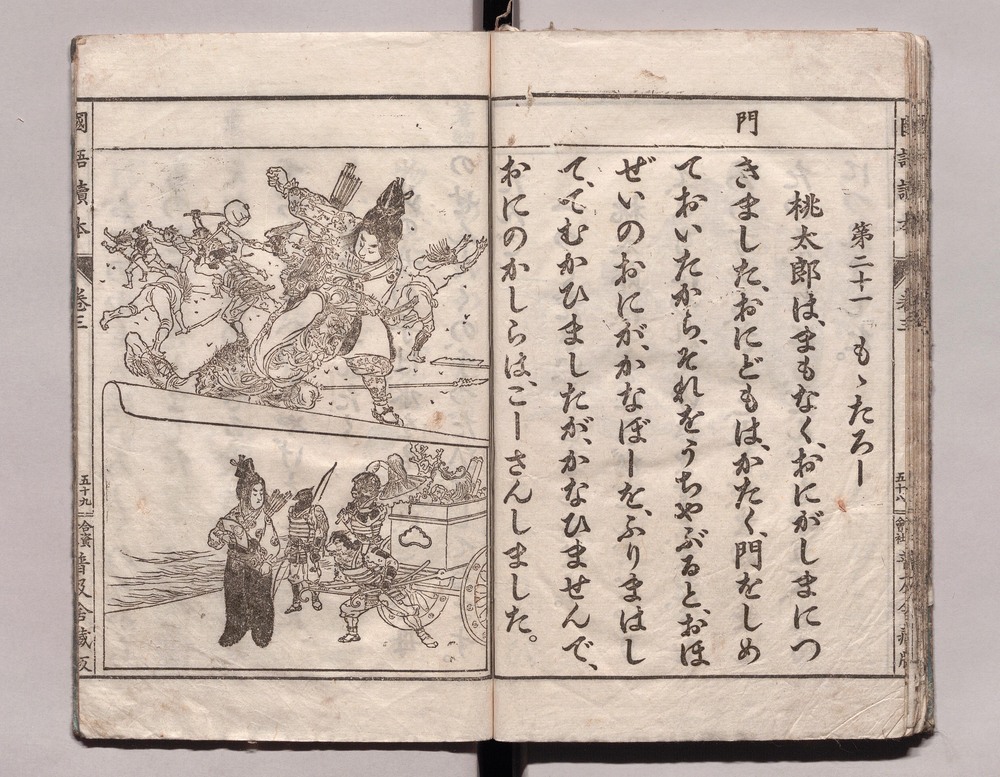 門
第二十一 もゝたろー
桃太郎は、まもなく、おにがしまにつ
きました、おにどもは、かたく、門をしめ
ておいたから、それをうちやぶると、おほ
ぜいのおにが、かなぼーを、ふりまはし
て、てむかひましたが、かなひませんで、
おにのかしらは、こーさんしました。
國語讀本
卷三
五十九
會資 普及舍藏版
國語讀本
卷三
五十八